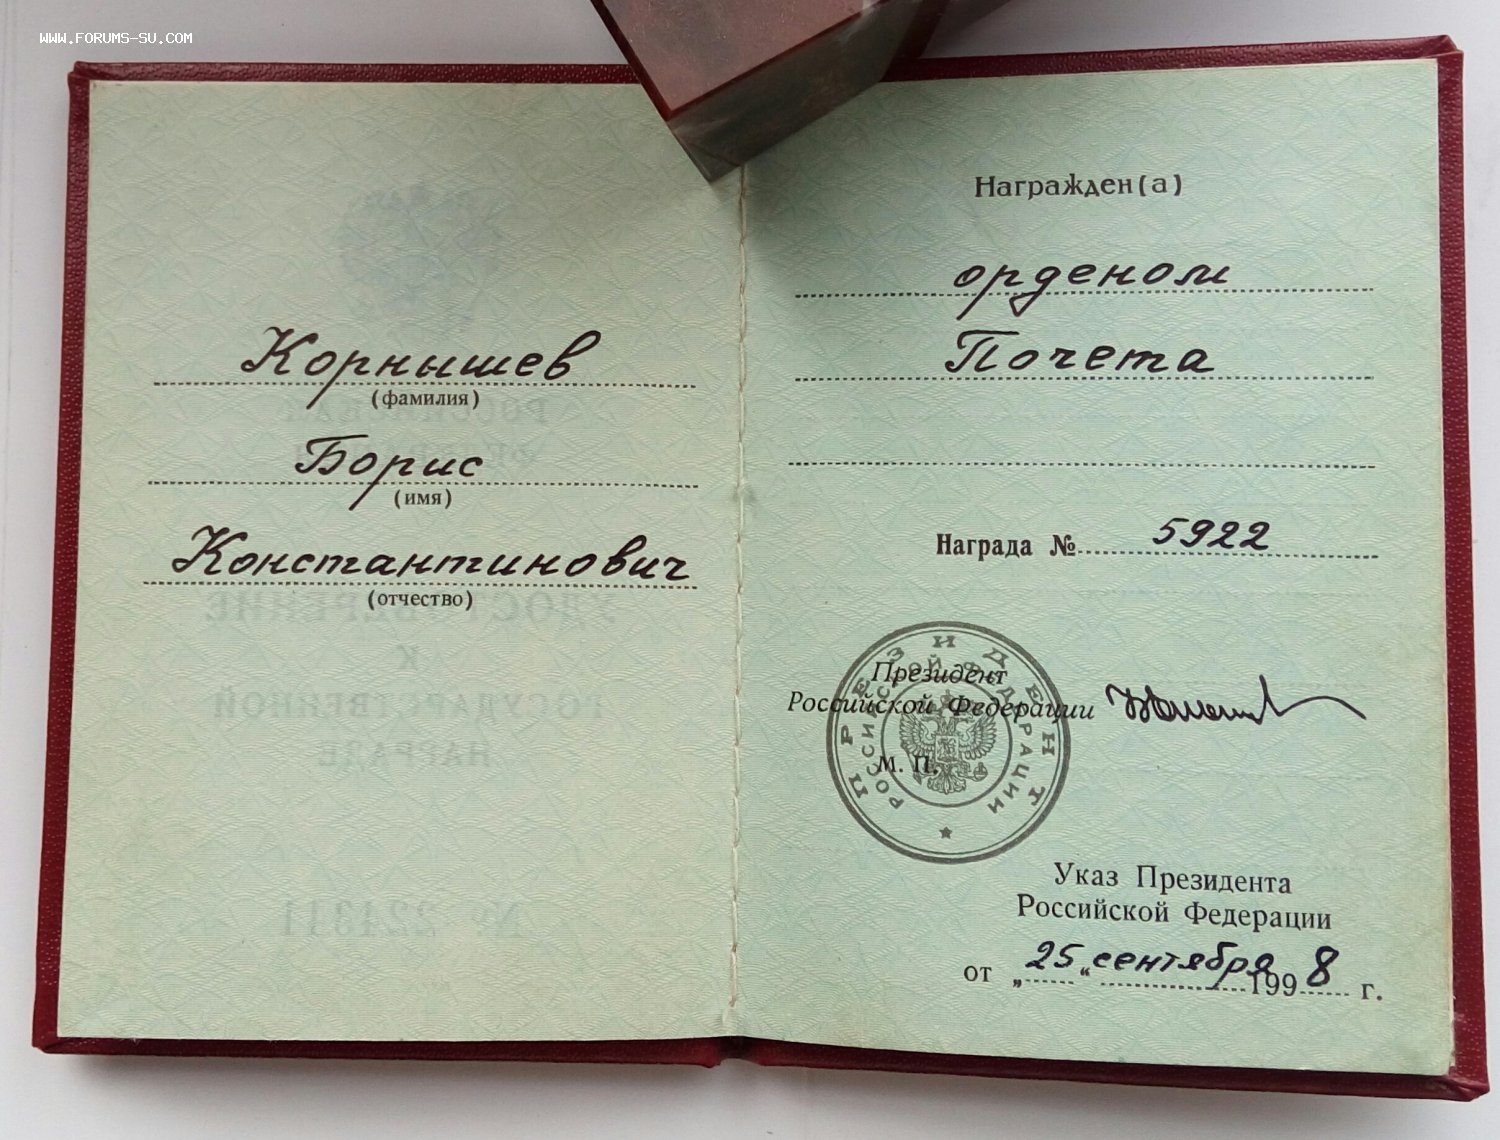 WWW.FORUMS-SU.COM
Корнышев
(фамилия)
Борис
(имя)
Константинович
(отчество)
Награжден(а)
орденом
Почета
Награда № 5922
ПРЕЗИДЕНТ
РОССИЙСКОЙ ФЕДЕРАЦИИ
Президент
Российской Федерации
М. П.
Указ Президента
Российской Федерации
от „25“ сентября 1998 г.
РОССИЙСКАЯ
ФЕДЕРАЦИЯ
УДОСТОВЕРЕНИЕ
К
ГОСУДАРСТВЕННОЙ
НАГРАДЕ